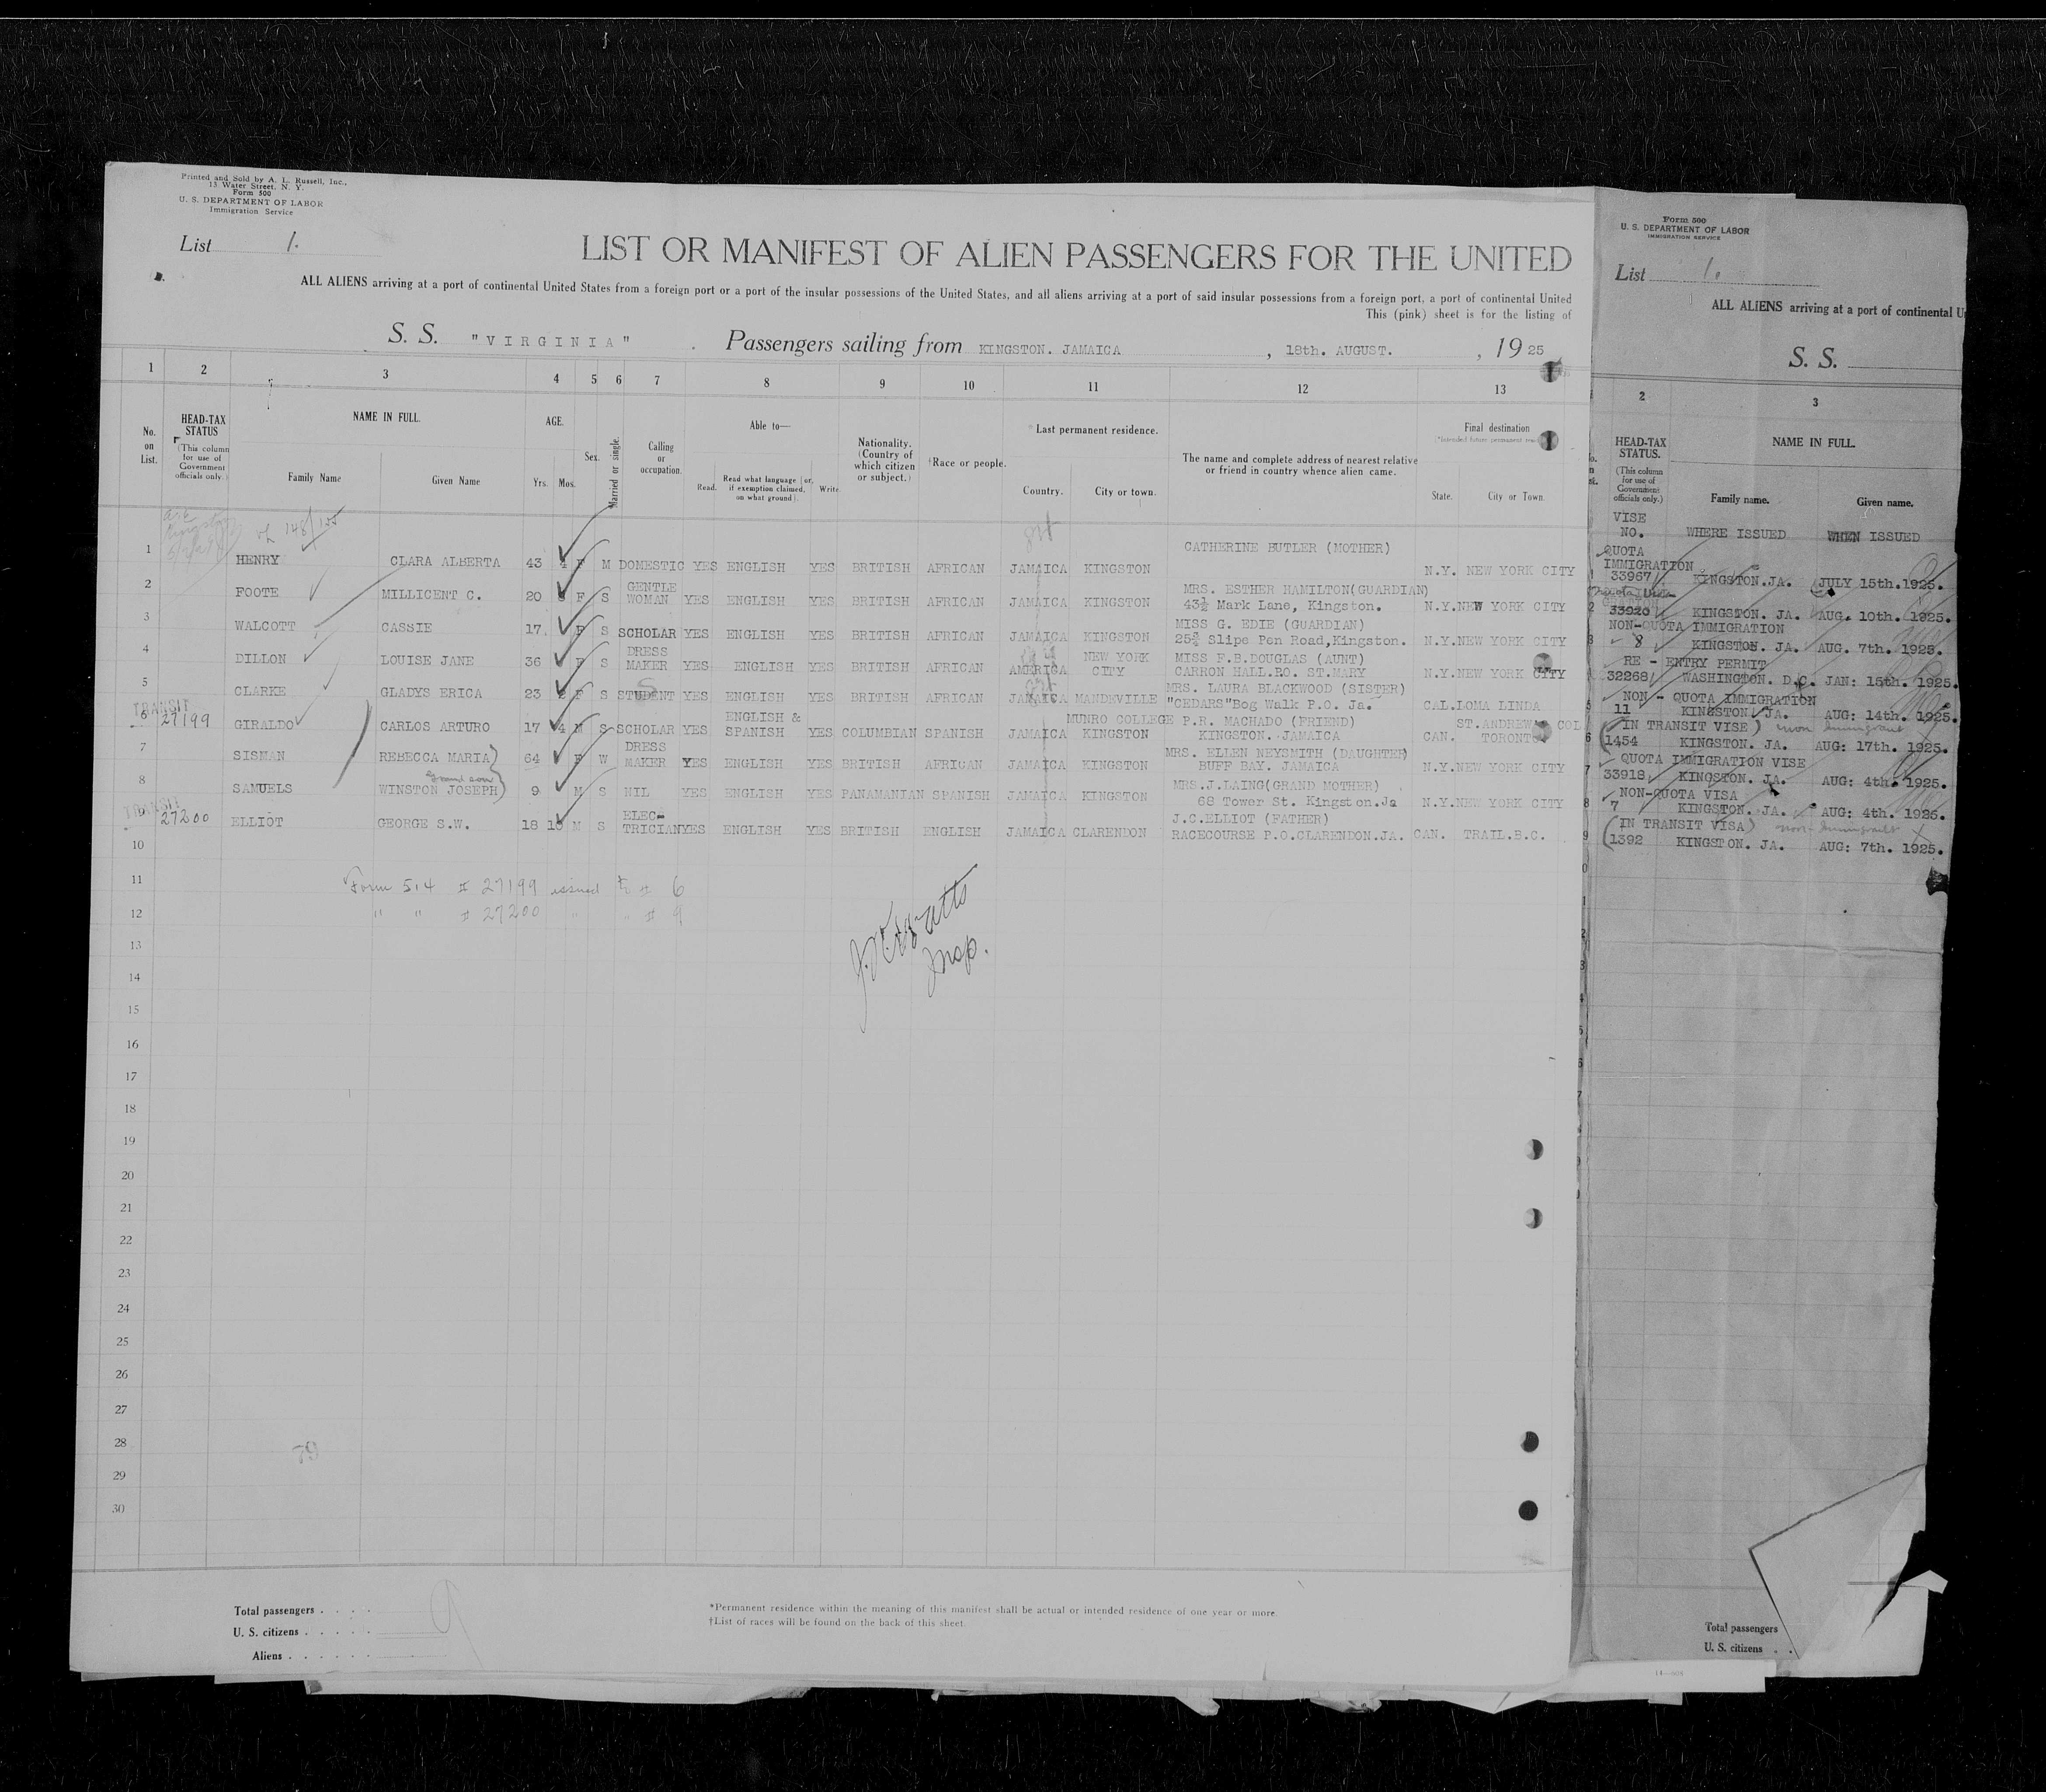 Printed and Sold by A. L. Russell, Inc.,
13 Water Street, N. Y.
Form 500
U. S. DEPARTMENT OF LABOR
Immigration Service
List 1.
LIST OR MANIFEST OF ALIEN PASSENGERS FOR THE UNITED
ALL ALIENS arriving at a port of continental United States from a foreign port or a port of the insular possessions of the United States, and all aliens arriving at a port of said insular possessions from a foreign port, a port of continental United
This (pink) sheet is for the listing of
S. S. "VIRGINIA" Passengers sailing from KINGSTON. JAMAICA, 18th. AUGUST., 1925
1 2 3 4 5 6 7 8 9 10 11 12 13
No. on List.
HEAD-TAX STATUS (This column for use of Government officials only.)
NAME IN FULL.
Family Name Given Name
AGE.
Yrs. Mos.
Sex.
Married or single.
Calling or occupation.
Able to—
Read. Read what language (or, if exemption claimed, on what ground). Write.
Nationality. (Country of which citizen or subject.)
†Race or people.
Last permanent residence.
Country. City or town.
The name and complete address of nearest relative or friend in country whence alien came.
Final destination
State. City or Town.
CATHERINE BUTLER (MOTHER)
1 HENRY CLARA ALBERTA 43 4 F M DOMESTIC YES ENGLISH YES BRITISH AFRICAN JAMAICA KINGSTON N.Y. NEW YORK CITY
GENTLE MRS. ESTHER HAMILTON(GUARDIAN)
2 FOOTE MILLICENT C. 20 F S WOMAN YES ENGLISH YES BRITISH AFRICAN JAMAICA KINGSTON 43½ Mark Lane, Kingston. N.Y.NEW YORK CITY
MISS G. EDIE (GUARDIAN)
3 WALCOTT CASSIE 17 F S SCHOLAR YES ENGLISH YES BRITISH AFRICAN JAMAICA KINGSTON Slipe Pen Road,Kingston. N.Y.NEW YORK CITY
DRESS NEW YORK MISS F.B.DOUGLAS (AUNT)
4 DILLON LOUISE JANE 36 F S MAKER YES ENGLISH YES BRITISH AFRICAN AMERICA CITY CARRON HALL.PO. ST.MARY N.Y.NEW YORK CITY
MRS. LAURA BLACKWOOD (SISTER)
5 CLARKE GLADYS ERICA 23 F S STUDENT YES ENGLISH YES BRITISH AFRICAN JAMAICA MANDEVILLE "CEDARS"Bog Walk P.O. Ja. CAL.LOMA LINDA
TRANSIT ENGLISH & MUNRO COLLEGE P.R. MACHADO (FRIEND) ST.ANDREWS COL
6 27199 GIRALDO CARLOS ARTURO 17 4 M S SCHOLAR YES SPANISH YES COLUMBIAN SPANISH JAMAICA KINGSTON KINGSTON. JAMAICA CAN. TORONTO
DRESS MRS. ELLEN NEYSMITH (DAUGHTER)
7 SISMAN REBECCA MARIA 64 F W MAKER YES ENGLISH YES BRITISH AFRICAN JAMAICA KINGSTON BUFF BAY. JAMAICA N.Y.NEW YORK CITY
Grand son MRS.J.LAING(GRAND MOTHER)
8 SAMUELS WINSTON JOSEPH 9 M S NIL YES ENGLISH YES PANAMANIAN SPANISH JAMAICA KINGSTON 68 Tower St. Kingston.Ja N.Y.NEW YORK CITY
TRANSIT ELEC- J.C.ELLIOT (FATHER)
9 27200 ELLIOT GEORGE S.W. 18 10 M S TRICIAN YES ENGLISH YES BRITISH ENGLISH JAMAICA CLARENDON RACECOURSE P.O.CLARENDON.JA. CAN. TRAIL.B.C.
10
11 Form 514 # 27199 issued to # 6
12 " " # 27200 " " # 9
Insp.
13
14
15
16
17
18
19
20
21
22
23
24
25
26
27
28
29
30
Total passengers
U. S. citizens
Aliens
9
*Permanent residence within the meaning of this manifest shall be actual or intended residence of one year or more.
†List of races will be found on the back of this sheet.
Form 500
U. S. DEPARTMENT OF LABOR
IMMIGRATION SERVICE
List 1.
ALL ALIENS arriving at a port of continental
S. S.
2 3
HEAD-TAX STATUS. (This column for use of Government officials only.)
NAME IN FULL.
Family name. Given name.
VISE NO. WHERE ISSUED WHEN ISSUED
QUOTA IMMIGRATION
33967 KINGSTON.JA. JULY 15th.1925.
33920 KINGSTON. JA. AUG. 10th. 1925.
NON-QUOTA IMMIGRATION
8 KINGSTON. JA. AUG. 7th. 1925.
RE - ENTRY PERMIT
32268 WASHINGTON. D.C. JAN: 15th. 1925.
NON - QUOTA IMMIGRATION
11 KINGSTON. JA. AUG: 14th. 1925.
(IN TRANSIT VISE) non immigrant
1454 KINGSTON. JA. AUG: 17th. 1925.
QUOTA IMMIGRATION VISE
33918 KINGSTON. JA. AUG: 4th. 1925.
NON-QUOTA VISA
7 KINGSTON. JA. AUG: 4th. 1925.
(IN TRANSIT VISA) non-immigrant
1392 KINGSTON. JA. AUG: 7th. 1925.
Total passengers
U. S. citizens